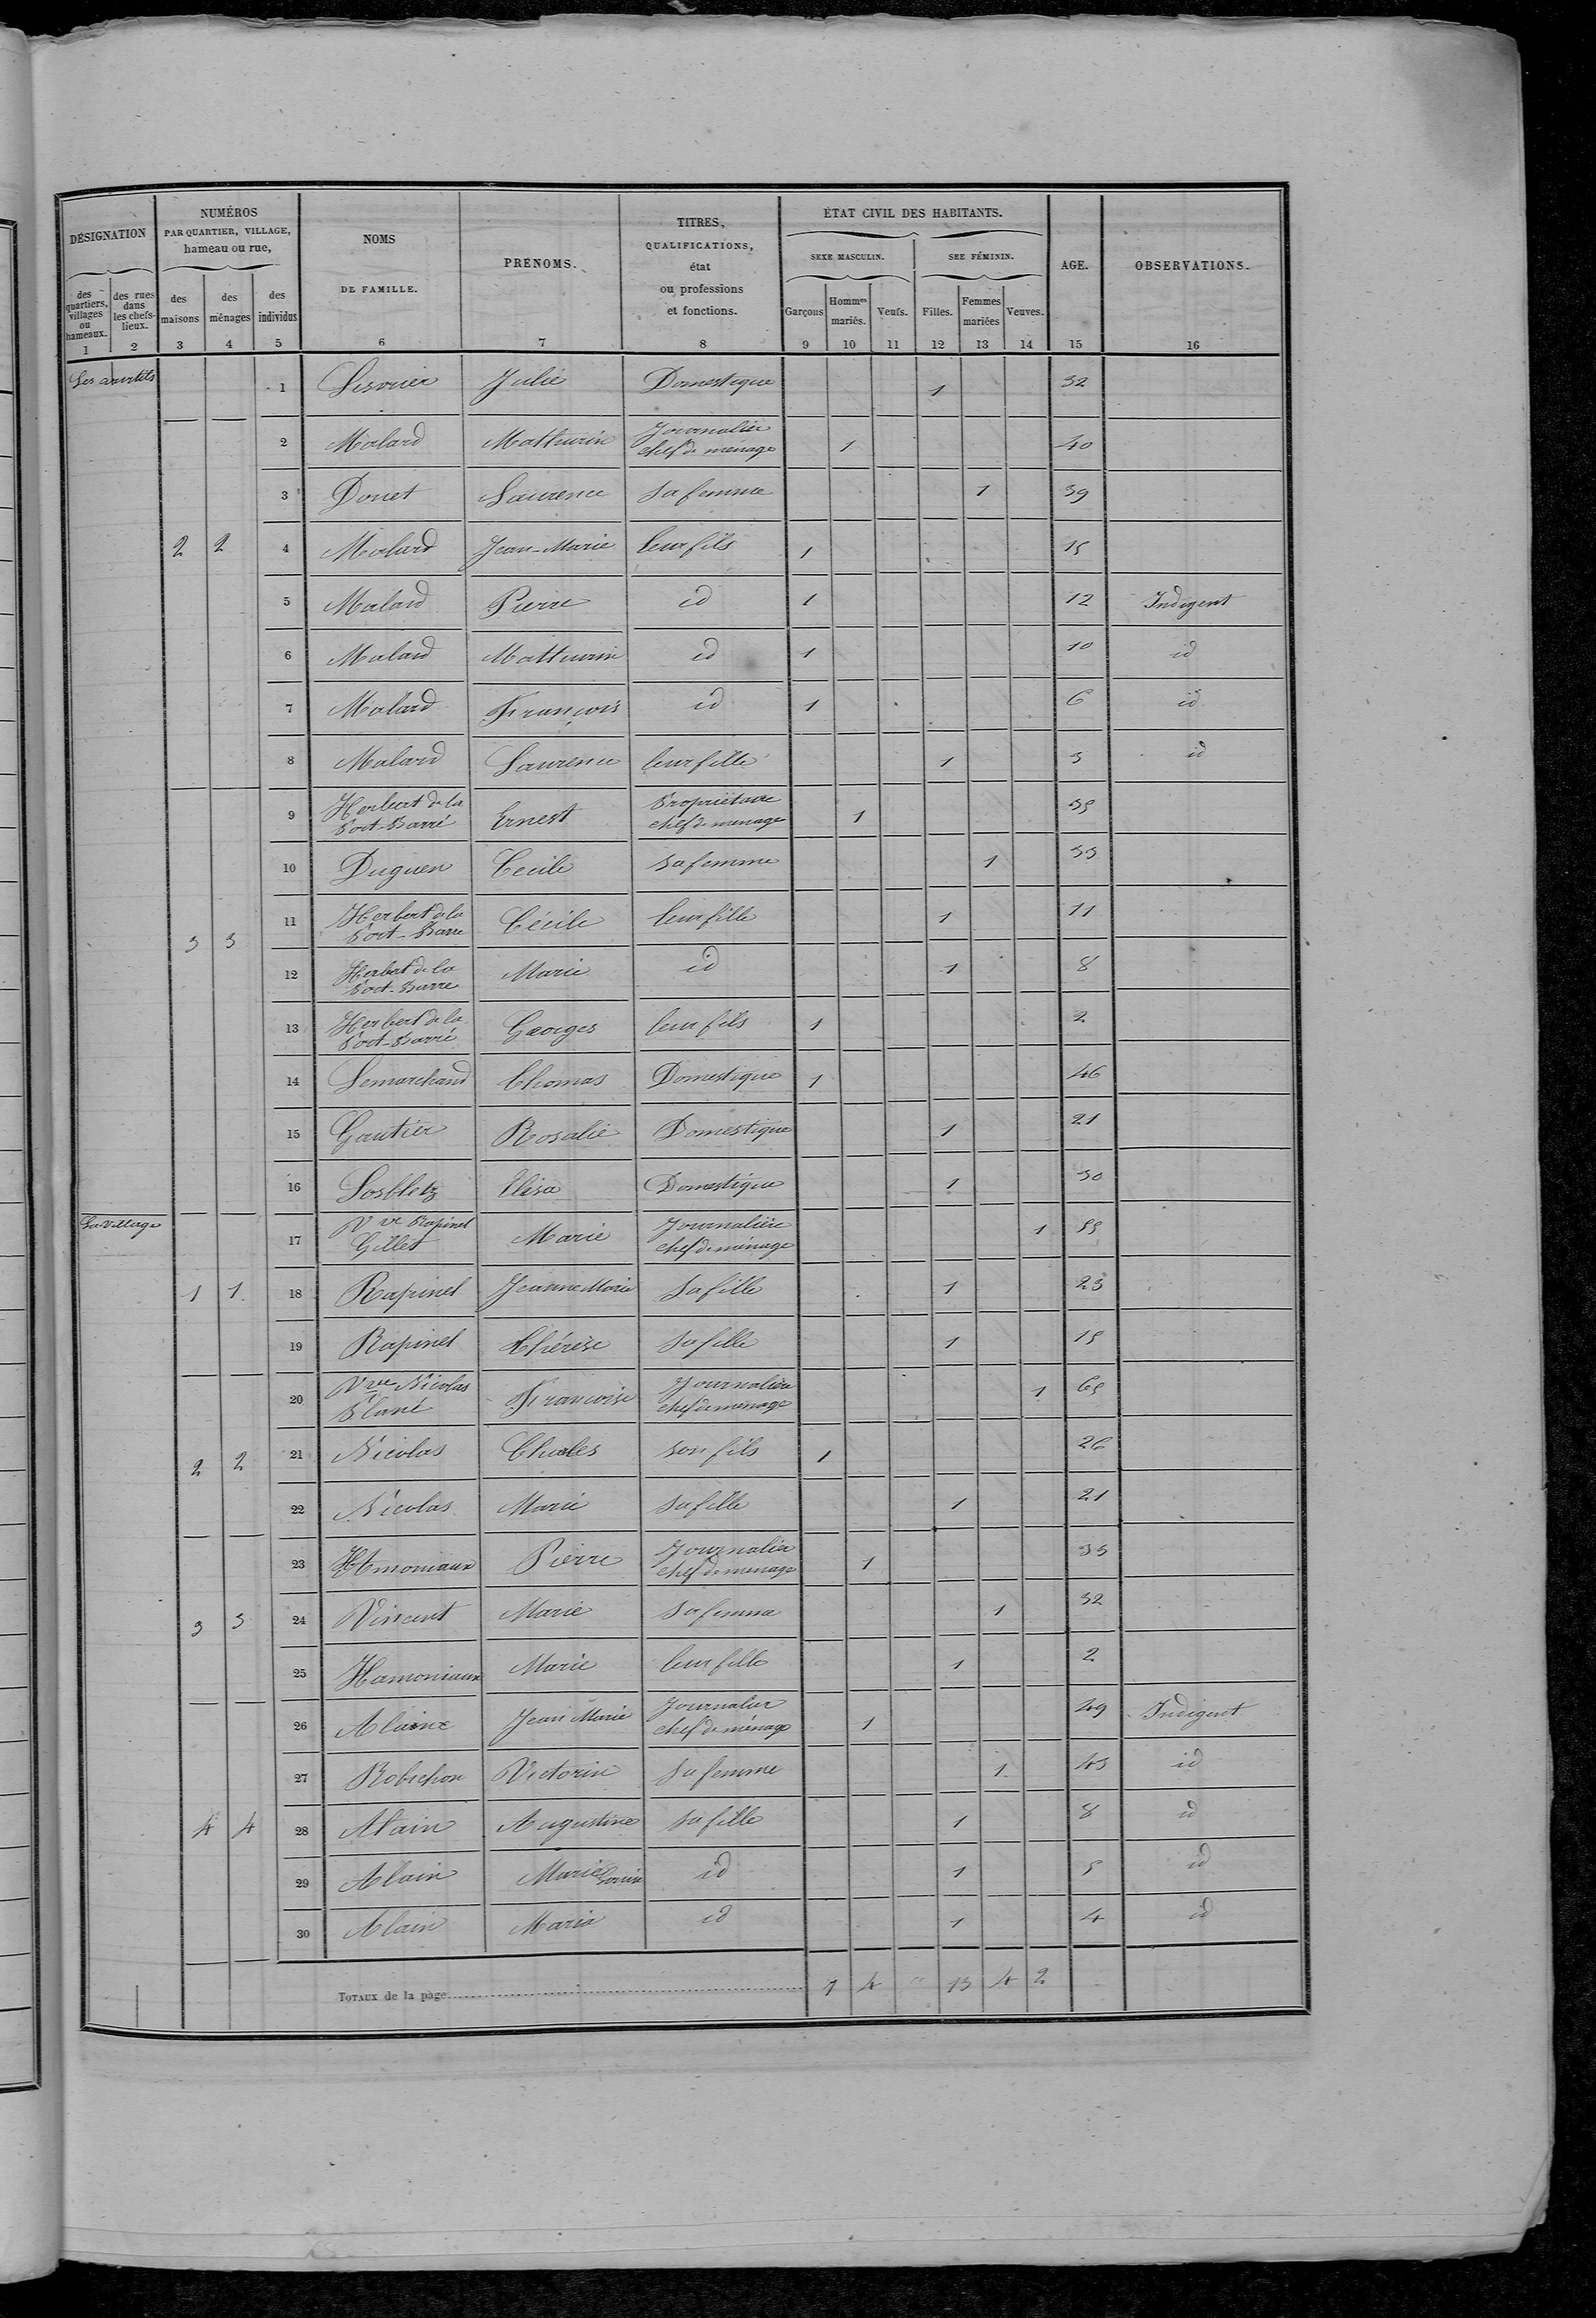 DÉSIGNATION
NUMÉROS
PAR QUARTIER, VILLAGE,
hameau ou rue,
NOMS
DE FAMILLE.
PRÉNOMS.
TITRES,
QUALIFICATIONS,
état
ou professions
et fonctions.
ÉTAT CIVIL DES HABITANTS.
SEXE MASCULIN.
SEE FÉMININ.
AGE.
OBSERVATIONS.
des quartiers, villages ou hameaux.
des rues dans les chefs-lieux.
des maisons
des ménages
des individus
Garçons
Hommes mariés.
Veufs.
Filles.
Femmes mariées
Veuves.
1 2 3 4 5 6 7 8 9 10 11 12 13 14 15 16
1 Julie Domestique 1 32
2 Malard Mathurin Journalier chef de ménage 1 40
3 Douet Laurence sa femme 1 39
2 2 4 Malard Jean-Marie leur fils 1 15
5 Malard Pierre id 1 12 Indigent
6 Malard Mathurin id 1 10 id
7 Malard François id 1 6 id
8 Malard Laurence leur fille 1 3 id
9 Herbert de la Port-Barré Ernest Propriétaire chef de menage 1 35
10 Duguen Cecile sa femme 1 33
3 3 11 Herbert de la Port-Barre Cécile leur fille 1 11
12 Herbert de la Port-Barre Marie id 1 8
13 Herbert de la Port-Barré Georges leur fils 1 2
14 Lemarchand Thomas Domestique 1 46
15 Gautier Rosalie Domestique 1 21
16 Elisa Domestique 1 30
La Village 17 Vve Rapinel Gillet Marie Journalière chef de ménage 1 55
1 1 18 Rapinel Jeanne Marie Sa fille 1 23
19 Rapinel Thérèse sa fille 1 15
20 Vve Nicolas Plané Francoise Journalière chef de menage 1 65
2 2 21 Nicolas Chales son fils 1 26
22 Nicolas Marie sa fille 1 21
23 Hamoniaux Pierre Journalier chef de menage 1 35
3 3 24 Vincent Marie sa femme 1 32
25 Hamoniaux Marie leur fille 1 2
26 Alaine Jean Marie Journalier chef de ménage 1 49 Indigent
27 Robichon Victorin sa femme 1 43 id
4 4 28 Alain Augustine sa fille 1 8 id
29 Alain Marie id 1 5 id
30 Alain Maria id 1 4 id
TOTAUX de la page 7 4 " 13 4 2